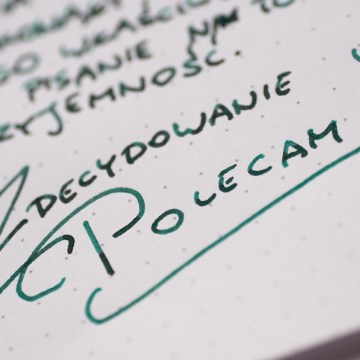 GO WŁAŚCIW
PISANIE NIM TO
ZYJEMNOŚĆ.
ZDECYDOWANIE
POLECAM